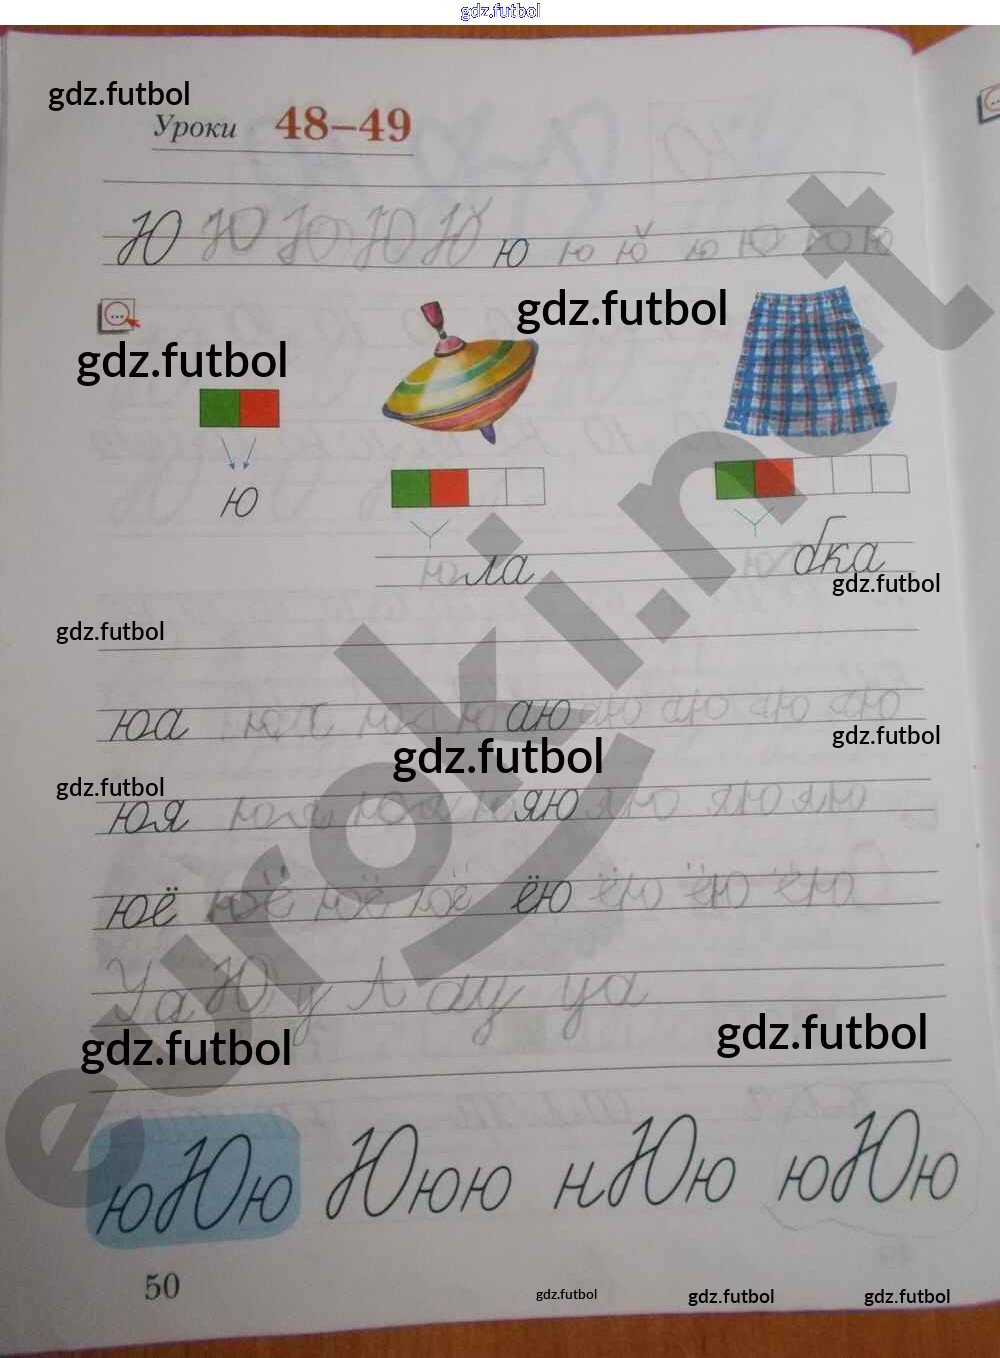 gdz.futbol
gdz.futbol
Уроки 48–49
Ю Ю Ю Ю Ю ю ю ю ю ю ю ю
gdz.futbol
gdz.futbol
ю
юла
юбка
gdz.futbol
gdz.futbol
юа аю аю аю аю аю
gdz.futbol
gdz.futbol
gdz.futbol
юя юя юя яю яю яю яю
юё юё юё юё ёю ёю ёю ёю
Уа Ю у А ау уа
gdz.futbol
gdz.futbol
юЮю Ююю нЮю юЮю
50
gdz.futbol
gdz.futbol
gdz.futbol
euroki.net